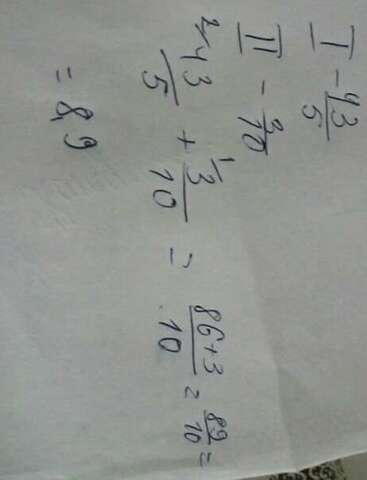 I - 43/5
II - 3/10
²⁄43/5 + ¹⁄3/10 = 86+3/10 = 89/10 =
= 8,9